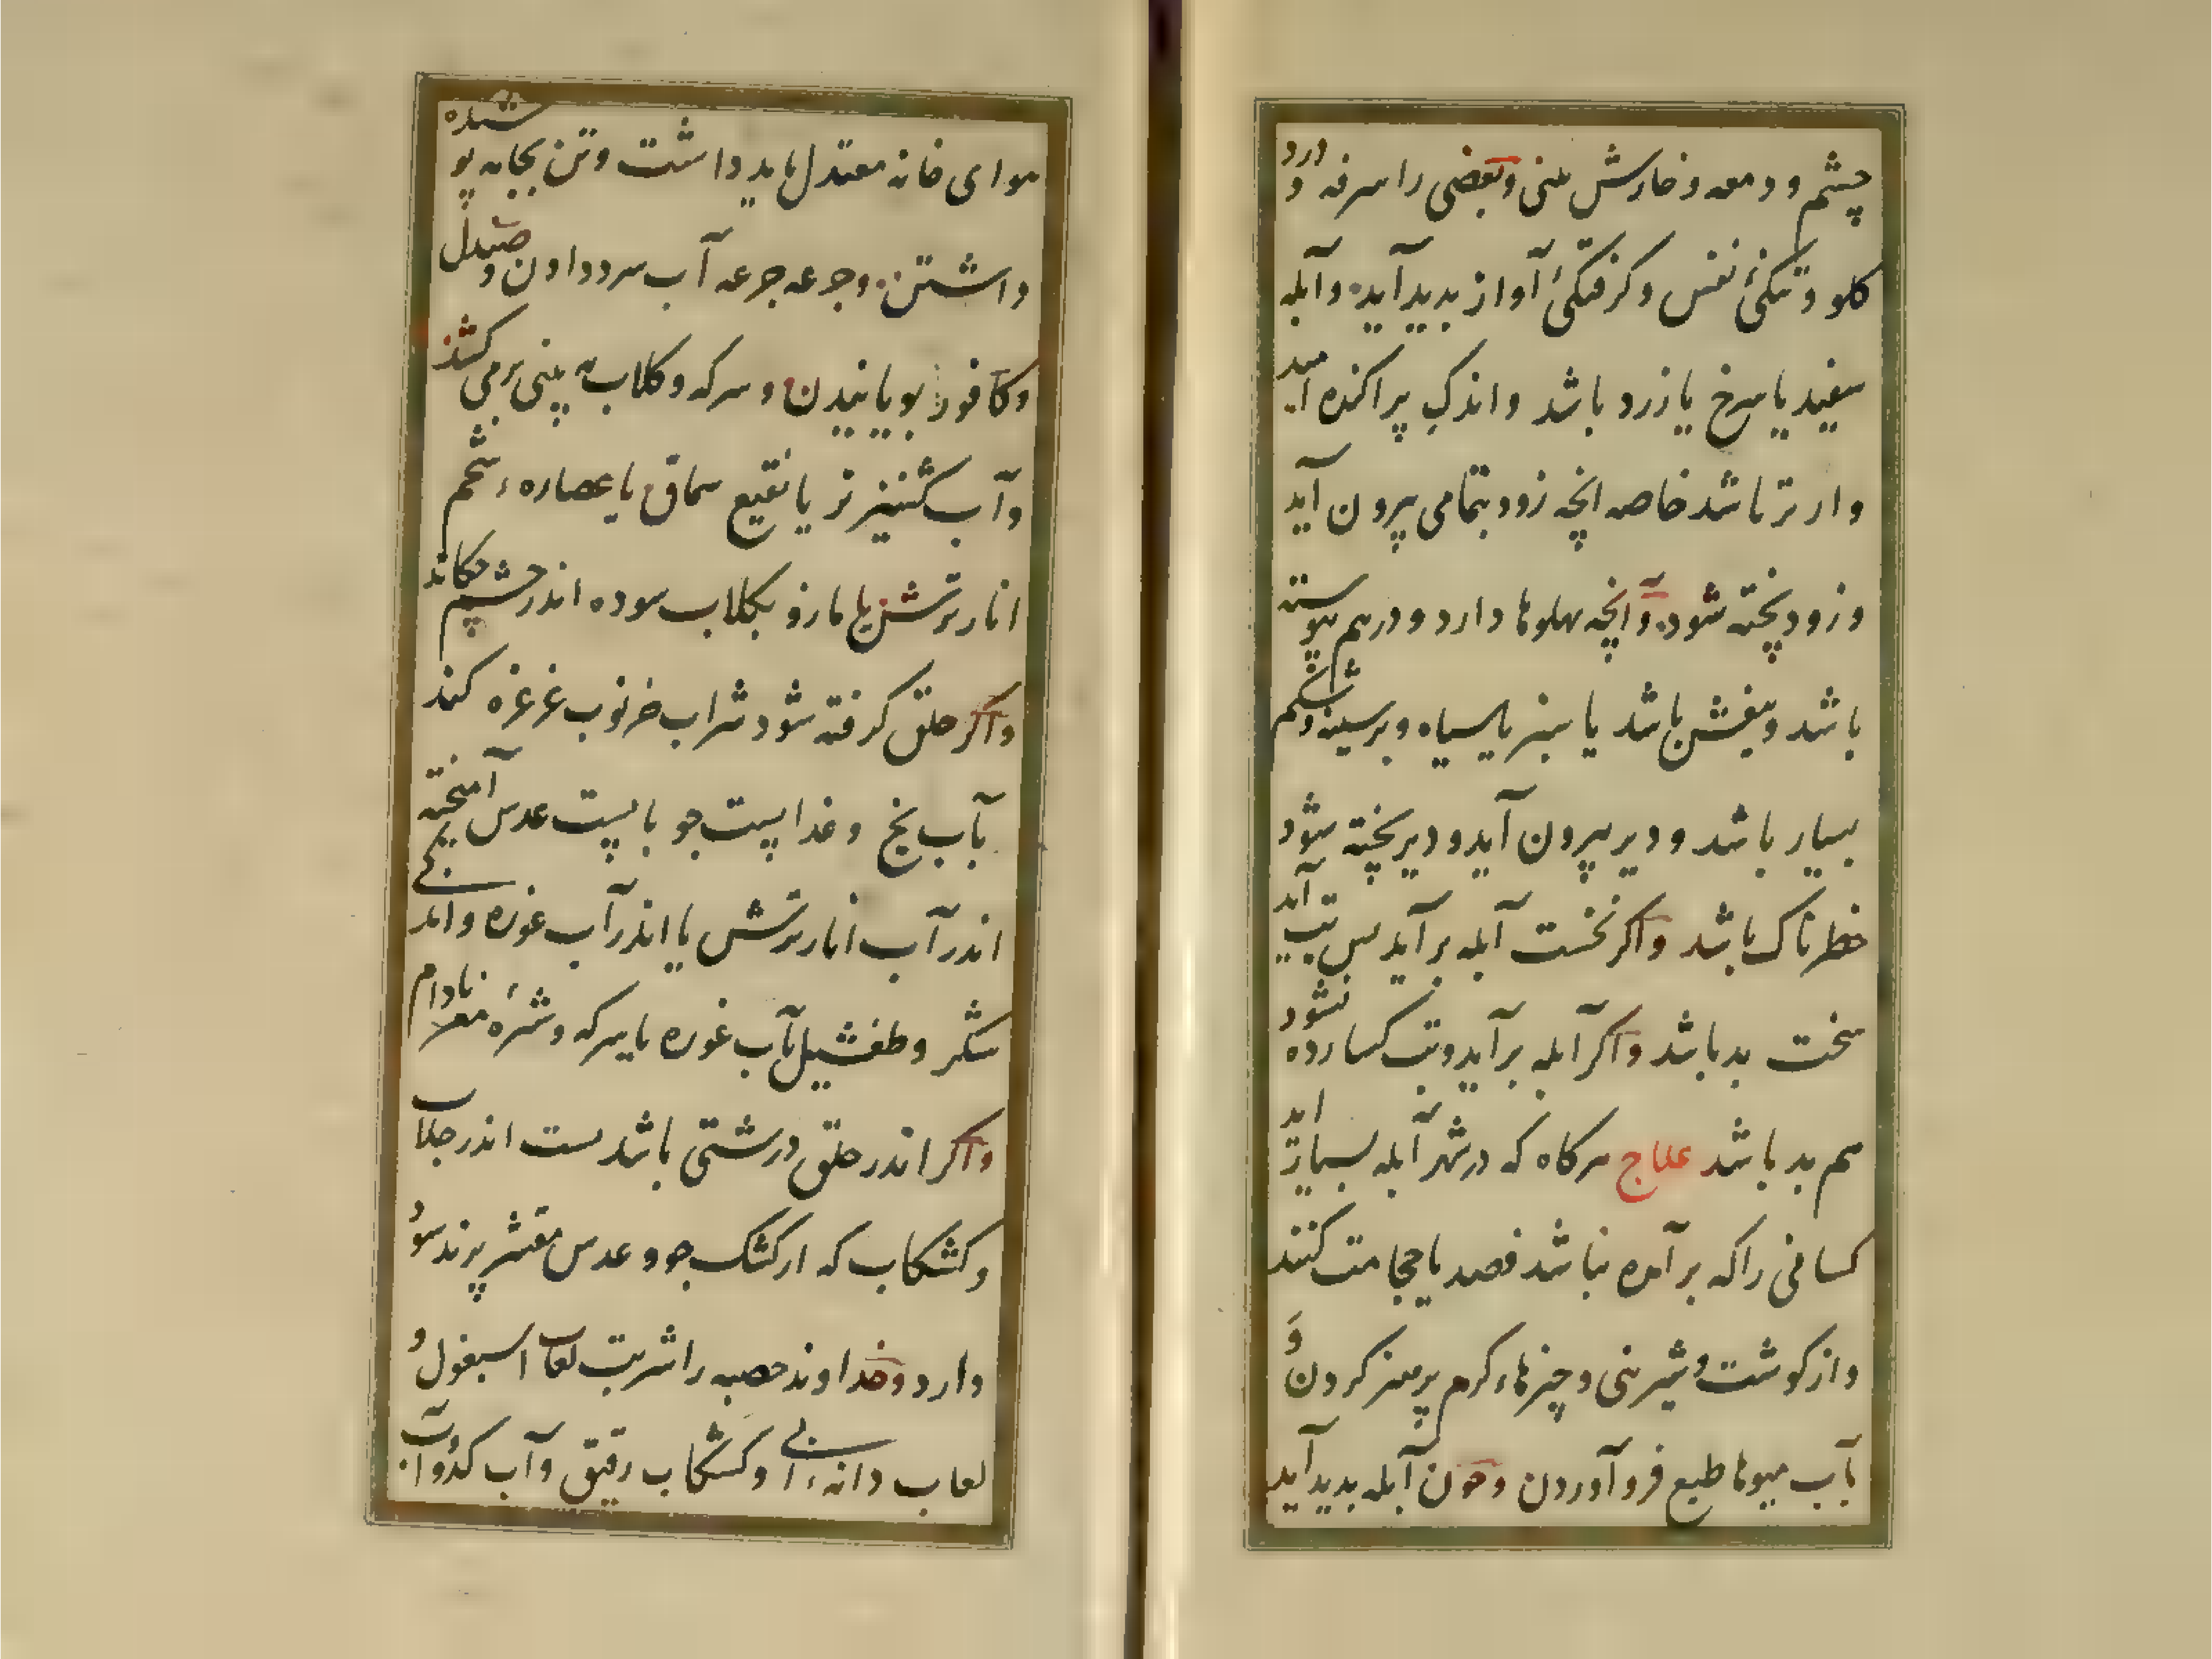 چشم و دمعه و خارش بینی و بعضی را سرفه و درد
کلو و تنکیٔ نفس و کرفتکیٔ آواز بدید آید و آبله
سفید یا سرخ یا زرد باشد و اندک پراکنده امید
وار تر باشد خاصه انچه زود بتمامی بیرون آید
و زود پخته شود و آنچه پهلوها دارد و در هم پیوسته
باشد و بنفش باشد یا سبز یا سیاه و بر سینه و شکم
بسیار باشد و دیر بیرون آید و دیر پخته شود
خطرناک باشد و اکر نخست آبله بر آید پس تب آید
سخت بد باشد و اکر آبله بر آید و تب کسارده نشود
هم بد باشد علاج هرکاه که در شهر آبله بسیار آید
کسانی را که بر آمده نباشد فصد یا حجامت کنند
و از کوشت و شیرینی و چیزهاء کرم پرهیز کردن و
بآب میوها طبع فرو آوردن و چون آبله بدید آید
هوای خانه معتدل باید داشت و تن بجامه پوشیده
داشتن و جرعه جرعه آب سرد دادن و صندل
و کافور بویانیدن و سرکه و کلاب به بینی بر می کشند
و آب کشنیز تر یا نقیع سماق یا عصاره شحم
انار ترش یا مازو بکلاب سوده اندر چشم چکانند
و اکر حلق کرفته شود شراب خرنوب غرغره کند
بآب یخ و غذا پست جو با پست عدس آمیخته
اندر آب انار ترش یا اندر آب غوره و اندکی
شکر و طفشیل بآب غوره یا سرکه و شیره مغز بادام
و اکر اندر حلق درشتی باشد پست اندر جلاب
و کشکاب که از کشک جو و عدس مقشر پزند سود
دارد و خداوند حصبه را شربت لعاب اسبغول و
لعاب دانه آبی و کشکاب رقیق و آب کدو و آب